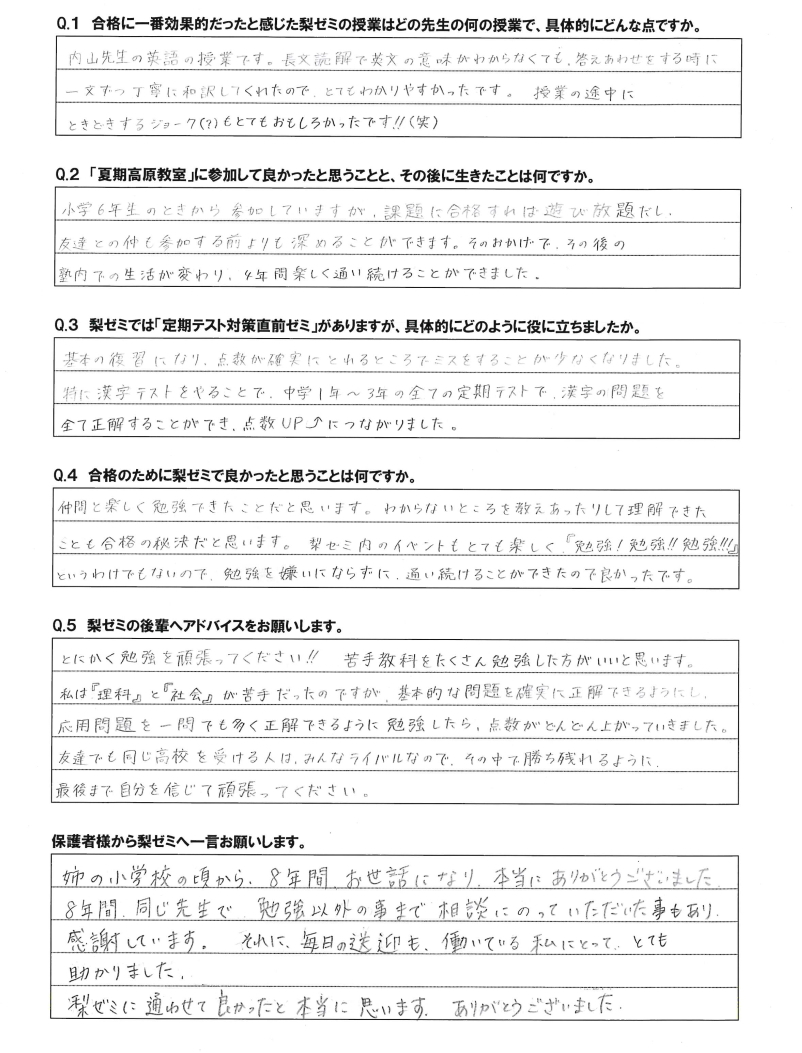 Q.1 合格に一番効果的だったと感じた梨ゼミの授業はどの先生の何の授業で、具体的にどんな点ですか。
内山先生の英語の授業です。長文読解で英文の意味がわからなくても、答えあわせをする時に
一文ずつ丁寧に和訳してくれたので、とてもわかりやすかったです。 授業の途中に
ときどきするジョーク(?)もとてもおもしろかったです!!(笑)
Q.2 「夏期高原教室」に参加して良かったと思うことと、その後に生きたことは何ですか。
小学6年生のときから参加していますが、課題に合格すれば遊び放題だし、
友達との仲も参加する前よりも深めることができます。そのおかげで、その後の
塾内での生活が変わり、4年間楽しく通い続けることができました。
Q.3 梨ゼミでは「定期テスト対策直前ゼミ」がありますが、具体的にどのように役に立ちましたか。
基本の復習になり、点数が確実にとれるところでミスをすることが少なくなりました。
特に漢字テストをやることで、中学1年〜3年の全ての定期テストで、漢字の問題を
全て正解することができ、点数UP⤴につながりました。
Q.4 合格のために梨ゼミで良かったと思うことは何ですか。
仲間と楽しく勉強できたことだと思います。わからないところを教えあったりして理解できた
ことも合格の秘決だと思います。 梨ゼミ内のイベントもとても楽しく、『勉強!勉強!!勉強!!!』
というわけでもないので、勉強を嫌いにならずに、通い続けることができたので良かったです。
Q.5 梨ゼミの後輩へアドバイスをお願いします。
とにかく勉強を頑張ってください!! 苦手教科をたくさん勉強した方がいいと思います。
私は『理科』と『社会』が苦手だったのですが、基本的な問題を確実に正解できるようにし、
応用問題を一問でも多く正解できるように勉強したら、点数がどんどん上がっていきました。
友達でも同じ高校を受ける人は、みんなライバルなので、その中で勝ち残れるように、
最後まで自分を信じて頑張ってください。
保護者様から梨ゼミへ一言お願いします。
姉の小学校の頃から、8年間、お世話になり、本当にありがとうございました。
8年間、同じ先生で 勉強以外の事まで相談にのっていただいた事もあり、
感謝しています。 それに、毎日の送迎も、働いている私にとって、とても
助かりました。
梨ゼミに通わせて良かったと本当に思います。 ありがとうございました。